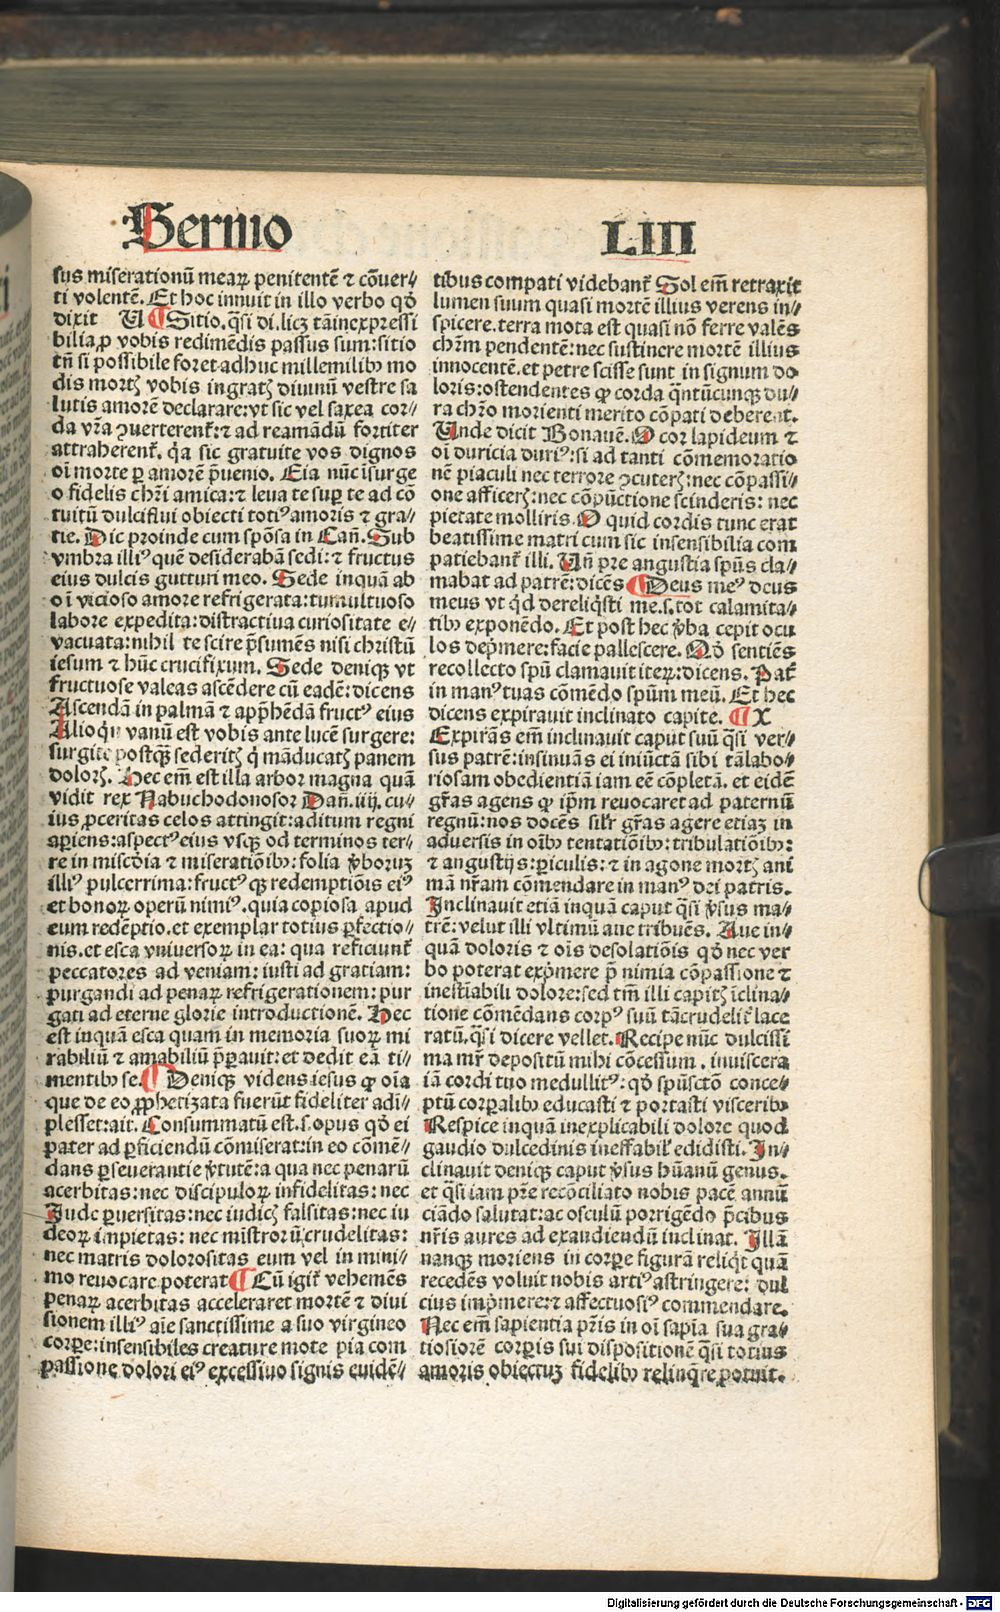 Sermo LIII
sus miserationū meaꝝ penitentē ⁊ cōuer⸗
ti volentē. Et hoc innuit in illo verbo qđ
dixit U ¶ Sitio. q̄si di. licꝫ tā inexpressi
bilia ꝓ vobis redimēdis passus sum: sitio
tn̄ si possibile foret adhuc millemilibꝰ mo
dis mortꝭ vobis ingratꝭ diuinū vestre sa
lutis amorē declarare: vt sic vel saxea cor⸗
da vr̄a ꝯuerterent̉: ⁊ ad reamādū fortiter
attraherent̉. q̇a sic gratuite vos dignos
oī morte ꝑ amorē p̄uenio. Eia nūc īsurge
o fidelis chr̄i amica: ⁊ leua te suꝑ te ad cō
tuitū dulciflui obiecti totiꝰ amoris ⁊ gra⸗
tie. Dic proinde cum spōsa in Can̄. Sub
vmbra illiꝰ quē desiderabā sedi: ⁊ fructus
eius dulcis gutturi meo. Sede inquā ab
oī vicioso amore refrigerata: tumultuoso
labore expedita: distractiua curiositate e⸗
vacuata: nihil te scire p̄sumēs nisi christū
iesum ⁊ hūc crucifixum. Sede deniqꝫ vt
fructuose valeas ascēdere cū eadē: dicens
Ascendā in palmā ⁊ app̄hēdā fructꝰ eius
Alioqn̄ vanū est vobis ante lucē surgere:
surgite postq̄ꝫ sederitꝭ q̇ māducatꝭ panem
dolorꝭ. Hec em̄ est illa arbor magna quā
vidit rex Nabuchodonosor Dan̄. iiij. cu⸗
ius ꝓceritas celos attingit: aditum regni
aꝑiens: aspectꝰ eius vsqꝫ od terminos ter⸗
re in misc̄dia ⁊ miseratiōibꝰ: folia v̄boruꝫ
illiꝰ pulcerrima: fructꝰ qꝫ redemptiōis eiꝰ
et bonoꝝ operū nimiꝰ. quia copiosa apud
eum redēptio. et exemplar totius ꝑfectio⸗
nis. et esca vniuersoꝝ in ea: qua reficiunt̉
peccatores ad veniam: iusti ad gratiam:
purgandi ad penaꝝ refrigerationem: pur
gati ad eterne glorie introductionē. Hec
est inquā esca quam in memoria suoꝝ mi
rabiliū ⁊ amabiliū p̄ꝑauit: et dedit eā ti⸗
mentibꝰ se. ¶ Deniqꝫ videns iesus ꝙ oīa
que de eo ꝓphetizata fuerūt fideliter adī⸗
plesset: ait. Consummatū est. s. opus qđ ei
pater ad ꝑficiendū cōmiserat: in eo cōmē⸗
dans ꝑseuerantie v̄tutē: a qua nec penarū
acerbitas: nec discipuloꝝ infidelitas: nec
Jude ꝑuersitas: nec iudicꝭ falsitas: nec iu
deoꝝ impietas: nec mistrorū crudelitas:
nec matris dolorositas eum vel in mini⸗
mo reuocare poterat ¶ Cū igit̉ vehemēs
penaꝝ acerbitas acceleraret mortē ⁊ diui
sionem illiꝰ aīe sanctissime a suo virgineo
corꝑe: insensibiles creature mote pia com
passione dolori eiꝰ excessiuo signis euidē⸗
tibus compati videbant̉. Sol em̄ retraxit
lumen suum quasi mortē illius verens in⸗
spicere. terra mota est quasi nō ferre valēs
chr̄m pendentē: nec sustinere mortē illius
innocentē. et petre scisse sunt in signum do
loris: ostendentes ꝙ corda q̄ntūcunqꝫ du⸗
ra chr̄o morienti merito cōpati deberent.
Unde dicit Bonauē. O cor lapideum ⁊
oī duricia duriꝰ: si ad tanti cōmemoratio
nē piaculi nec terrore ꝯcuterꝭ: nec cōpassi⸗
one afficerꝭ: nec cōpūctione scinderis: nec
pietate molliris. O quid cordis tunc erat
beatissime matri cum sic insensibilia com
patiebant̉ illi. Un̄ pre angustia spūs cla⸗
mabat ad patrē: dicēs ¶ Deus meꝰ deus
meus vt q̇d dereliq̇sti me. s. tot calamita⸗
tibꝰ exponēdo. Et post hec v̄ba cepit ocu
los dep̄mere: facie pallescere. Qđ sentiēs
recollecto spū clamauit iteꝝ: dicens. Pat̉
in manꝰ tuas cōmēdo spūm meū. Et hec
dicens expirauit inclinato capite. ¶ X
Expirās em̄ inclinauit caput suū q̄si ver⸗
sus patrē: insinuās ei iniūctā sibi tālabo⸗
riosam obedientiā iam eē cōpletā. et eidē
gr̄as agens ꝙ ip̄m reuocaret ad paternū
regnū: nos docēs silr̉ gr̄as agere etiaꝫ in
aduersis in oībꝰ tentatiōibꝰ: tribulatiōibꝰ:
⁊ angustijs: ꝑiculis: ⁊ in agone mortꝭ ani
mā nr̄am cōmendare in manꝰ dei patris.
Inclinauit etiā inquā caput q̄si v̄sus ma⸗
trē: velut illi vltimū aue tribuēs. Aue in⸗
quā doloris ⁊ oīs desolatiōis qđ nec ver
bo poterat exp̄mere p̄ nimia cōpassione ⁊
inestīabili dolore: sed tm̄ illi capitꝭ īclina⸗
tione cōmēdans corpꝰ suū tācrudelit̉ lace
ratū. q̄si dicere vellet. Recipe nūc dulcissi
ma mr̄ depositū mihi cōcessum. inuiscera
iā cordi tuo medullitꝰ: qđ spūsctō conce⸗
ptū corꝑalibꝰ educasti ⁊ portasti visceribꝰ
Respice inquā inexplicabili dolore quod
gaudio dulcedinis ineffabil̉ edidisti. In⸗
clinauit deniqꝫ caput v̄sus hūanū genus.
et q̄si iam pr̄e recōciliato nobis pacē annū
ciādo salutat: ac osculū porrigēdo p̄cibus
nr̄is aures ad exaudiendū inclinat. Illā
nanqꝫ moriens in corꝑe figurā reliq̇t quā
recedēs voluit nobis artiꝰ astringere: dul
cius imp̄mere: ⁊ affectuosiꝰ commendare.
Nec em̄ sapientia pr̄is in oī sapīa sua gra⸗
tiosiorē corꝑis sui dispositionē q̄si totius
amoris obiectuꝫ fidelibꝰ relinq̄re potuit.
Digitalisierung gefördert durch die Deutsche Forschungsgemeinschaft - DFG